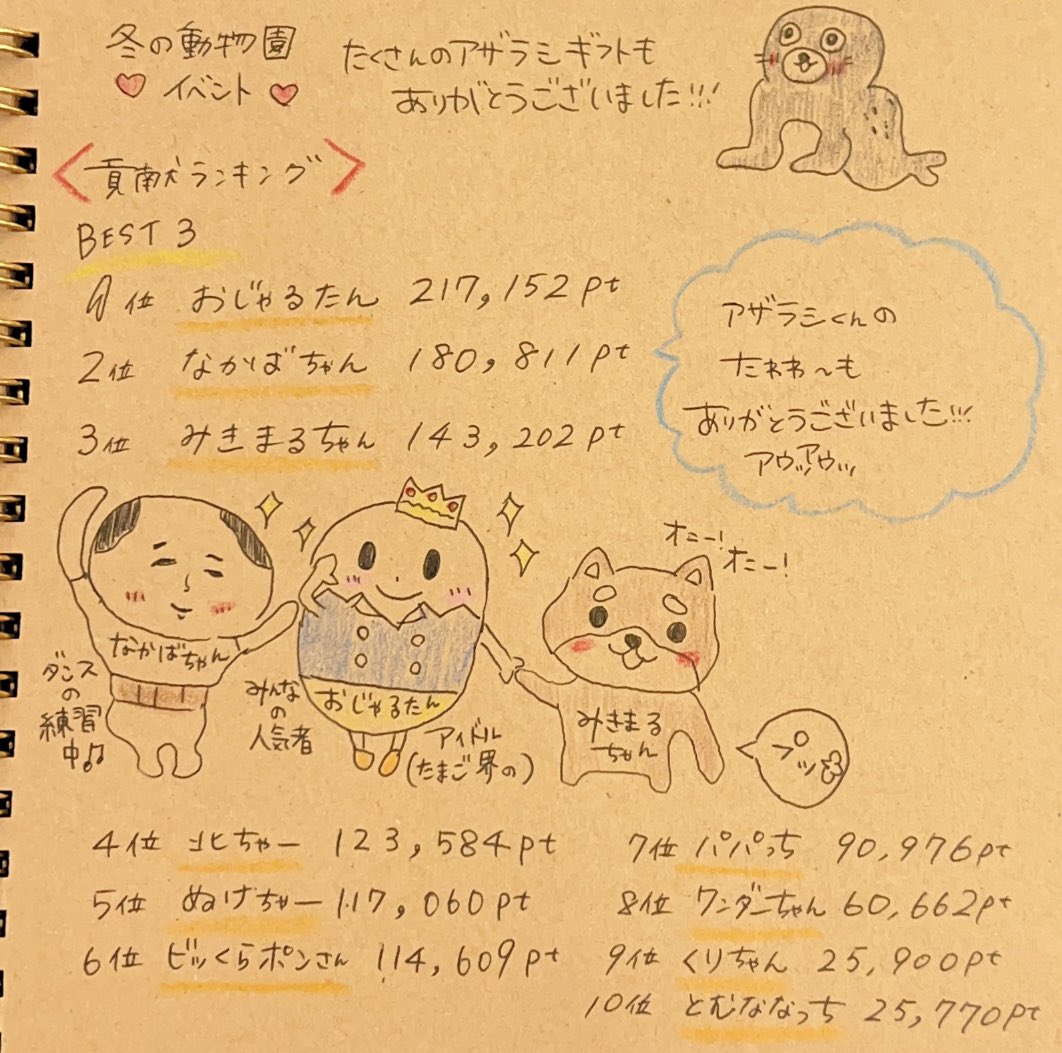 冬の動物園
イベント
たくさんのアザラシギフトも
ありがとうございました!!!
<貢献ランキング>
BEST 3
1位 おじゃるたん 217,152pt
2位 なかばちゃん 180,811pt
3位 みきまるちゃん 143,202pt
アザラシくんの
たわわ〜も
ありがとうございました!!!
アウッアウッ
オニー!
オニー!
なかばちゃん
ダンス
の
練習
中♪♪
みんな
の
人気者
おじゃるたん
アイドル
(たまご界の)
みきまる
ちゃん
プッ
4位 北ちゃー 123,584pt
5位 ぬけちゃー 117,060pt
6位 ビッくらポンさん 114,609pt
7位 パパっち 90,976pt
8位 ワンダーちゃん 60,662pt
9位 くりちゃん 25,900pt
10位 とむななっち 25,770pt